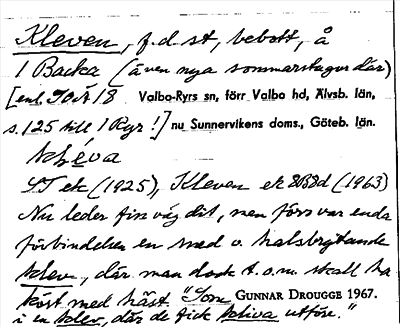 Kleven, f.d. st, bebott, å
1 Backa (även nya sommarstugor där)
[enl. Soä 18 Valbo-Ryrs sn, förr Valbo hd, Älvsb. län,
s. 125 till 1 Ryr!] nu Sunnervikens doms., Göteb. län.
kléva
ST ek (1925), Kleven ek 8B8d (1963)
Nu leder fin väg dit, men förr var enda
förbindelsen en med v. halsbrytande
klev, där man dock t.o.m. skall ha
kört med häst. "Som GUNNAR DROUGGE 1967.
i en klev, där de fick kliva utför."